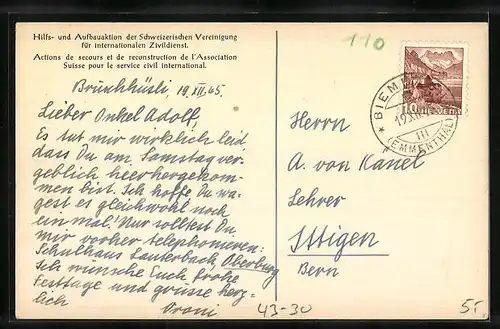 Hilfs- und Aufbauaktion der Schweizerischen Vereinigung
für internationalen Zivildienst.
Actions de secours et de reconstruction de l'Association
Suisse pour le service civil international.
19.XII.45
Lieber Onkel Adolf,
Es tut mir wirklich leid,
dass Du am Samstag ver-
geblich hierhergekom-
men bist. Ich hoffe Du wa-
gest es gleichwohl noch
ein mal! Nur solltest Du
mir vorher telephonieren:
Schulhaus Lauterbach, Oberburg
Ich wünsche Euch frohe
Festtage und grüsse herz-
lich
43-30
110
10 HELVETIA
III
(EMMENTHAL)
Herrn
A. von Känel
Lehrer
Ittigen
Bern
5.-